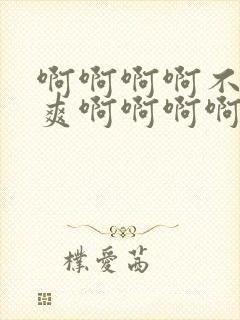 啊啊啊啊不
爽啊啊啊啊
樸愛茜